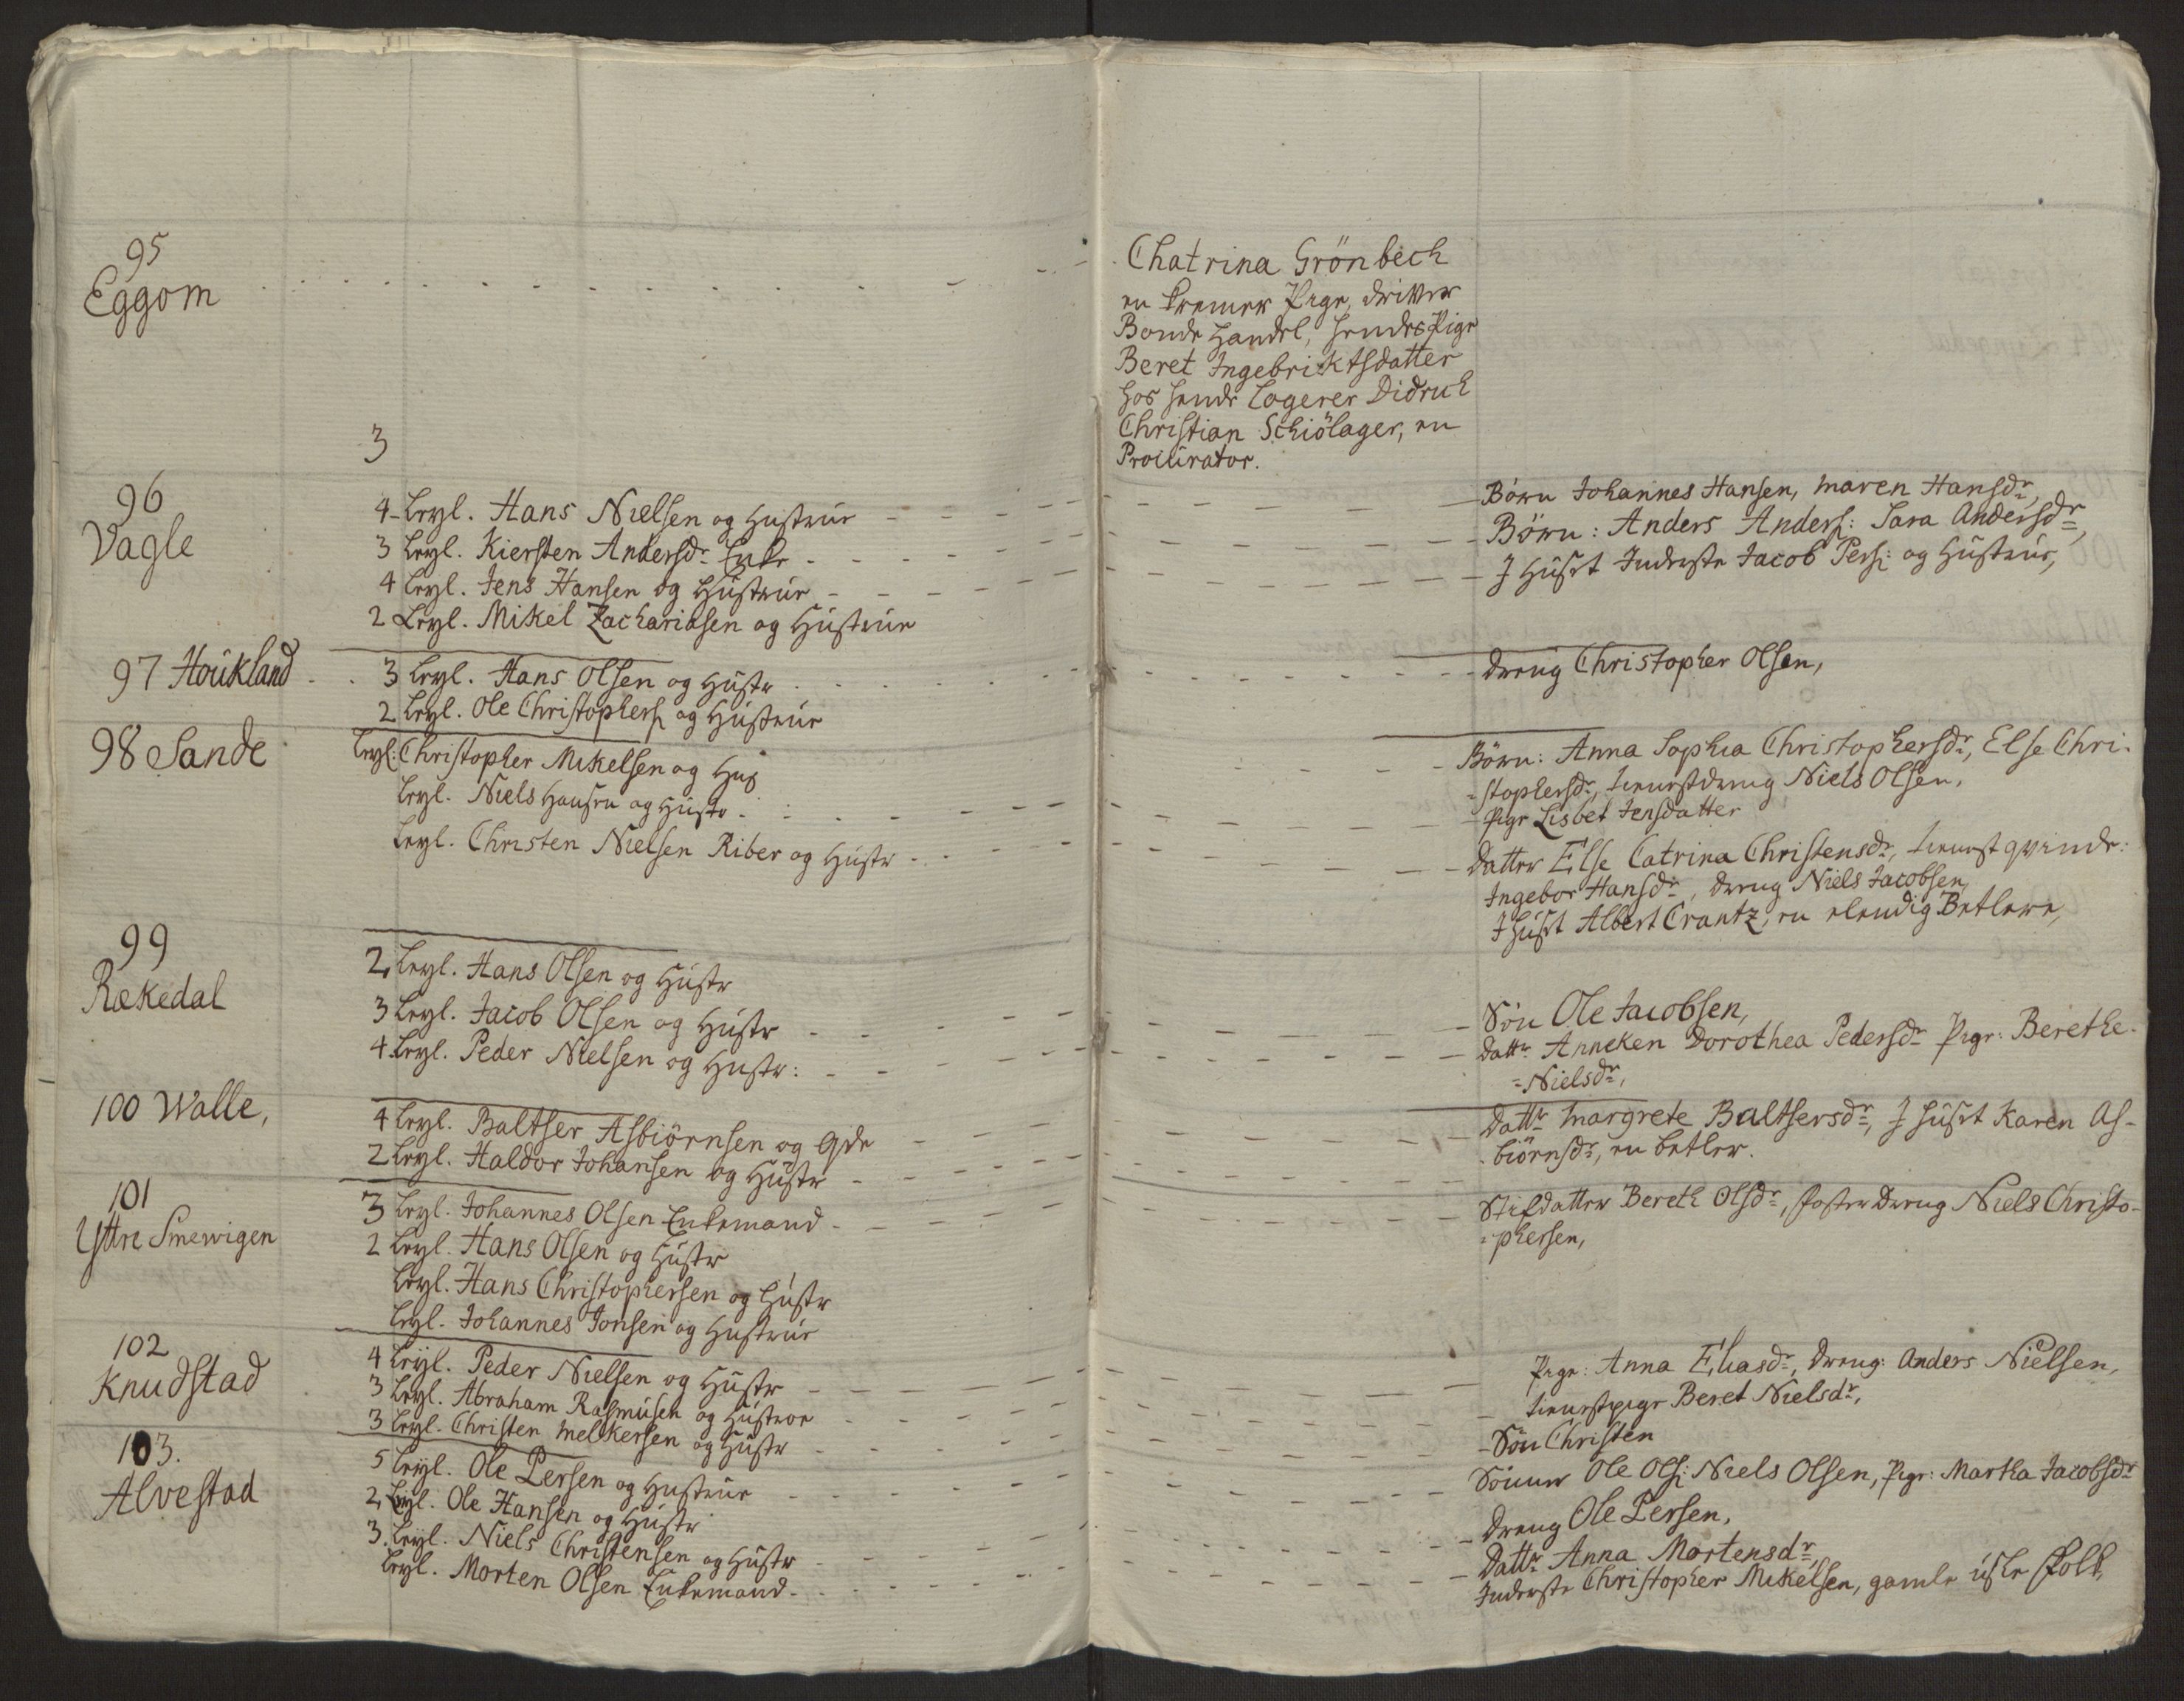 95
Eggom
3
Chatrina Grönbech
en Kremer Pige, driver
Bonde Handel, hendes Pige
Beret Ingebriktsdatter
hos hende Logerer Didrich
Christian Schiölager, en
Procurator.
96
Vagle
4 Leyl. Hans Nielsen og Hustrue - Börn Johannes Hansen, Maren Hansdr,
3 Leyl. Kiersten Andersdr Enke - Börn: Anders Anders: Sara Andersdr,
4 Leyl. Jens Hansen og Hustrue - I Huset Inderste Jacob Pers: og Hustrue,
2 Leyl. Mikel Zachariasen og Hustrue
97 Houkland
3 Leyl. Hans Olsen og Hustr - Dreng Christopher Olsen,
2 Leyl. Ole Christophers og Hustrue
98 Sande
Leyl: Christopher Mikelsen og Hus - Börn: Anna Sophia Christophersdr, Else Chri-
=stophersdr, tienestdreng Niels Olsen,
Leyl. Niels Hansen og Hustr - Pige Lisbet Jensdatter
Leyl. Christen Nielsen Riber og Hustr - Datter Else Catrina Christensdr, tienestqvinde:
Ingebor Hansdr, dreng Niels Jacobsen,
I Huset Albert Crantz, en elendig Betlere,
99
Rækedal
2 Leyl. Hans Olsen og Hustr
3 Leyl. Jacob Olsen og Hustr - Sön Ole Jacobsen,
4 Leyl. Peder Nielsen og Hustr: - Dattr Anneken Dorothea Pedersdr Pige: Berethe
=Nielsdr,
100 Walle,
4 Leyl. Baltser Asbiörnsen og Qde - Dattr Margrete Baltsersdr, I huset Karen As-
biörnsdr, en betler.
2 Leyl. Haldor Johansen og Hustr
101
Yttre Smewigen
3 Leyl. Johannes Olsen Enkemand - Stifdatter Bereth Olsdr, foster Dreng Niels Christo-
=phersen,
2 Leyl. Hans Olsen og Hustr
Leyl. Hans Christophersen og Hustr
Leyl. Johannes Jonsen og Hustrue
102
Knudstad
4 Leyl. Peder Nielsen og Hustr - Pige: Anna Eliasdr, Dreng: Anders Nielsen,
3 Leyl. Abraham Rasmusen og Hustroe - tienestpige Beret Nielsdr,
3 Leyl. Christen Melkersen og Hustr - Sön Christen
103.
Alvestad
5 Leyl. Ole Persen og Hustrue - Sönner Ole Ols: Niels Olsen, Pige: Martha Jacobsdr
2 Leyl. Ole Hansen og Hustr
3. Leyl. Niels Christensen og Hustr - Dreng Ole Persen,
Leyl. Morten Olsen Enkemand - Dattr Anna Mortensdr,
Inderste Christopher Mikelsen, gamle usle Folk,